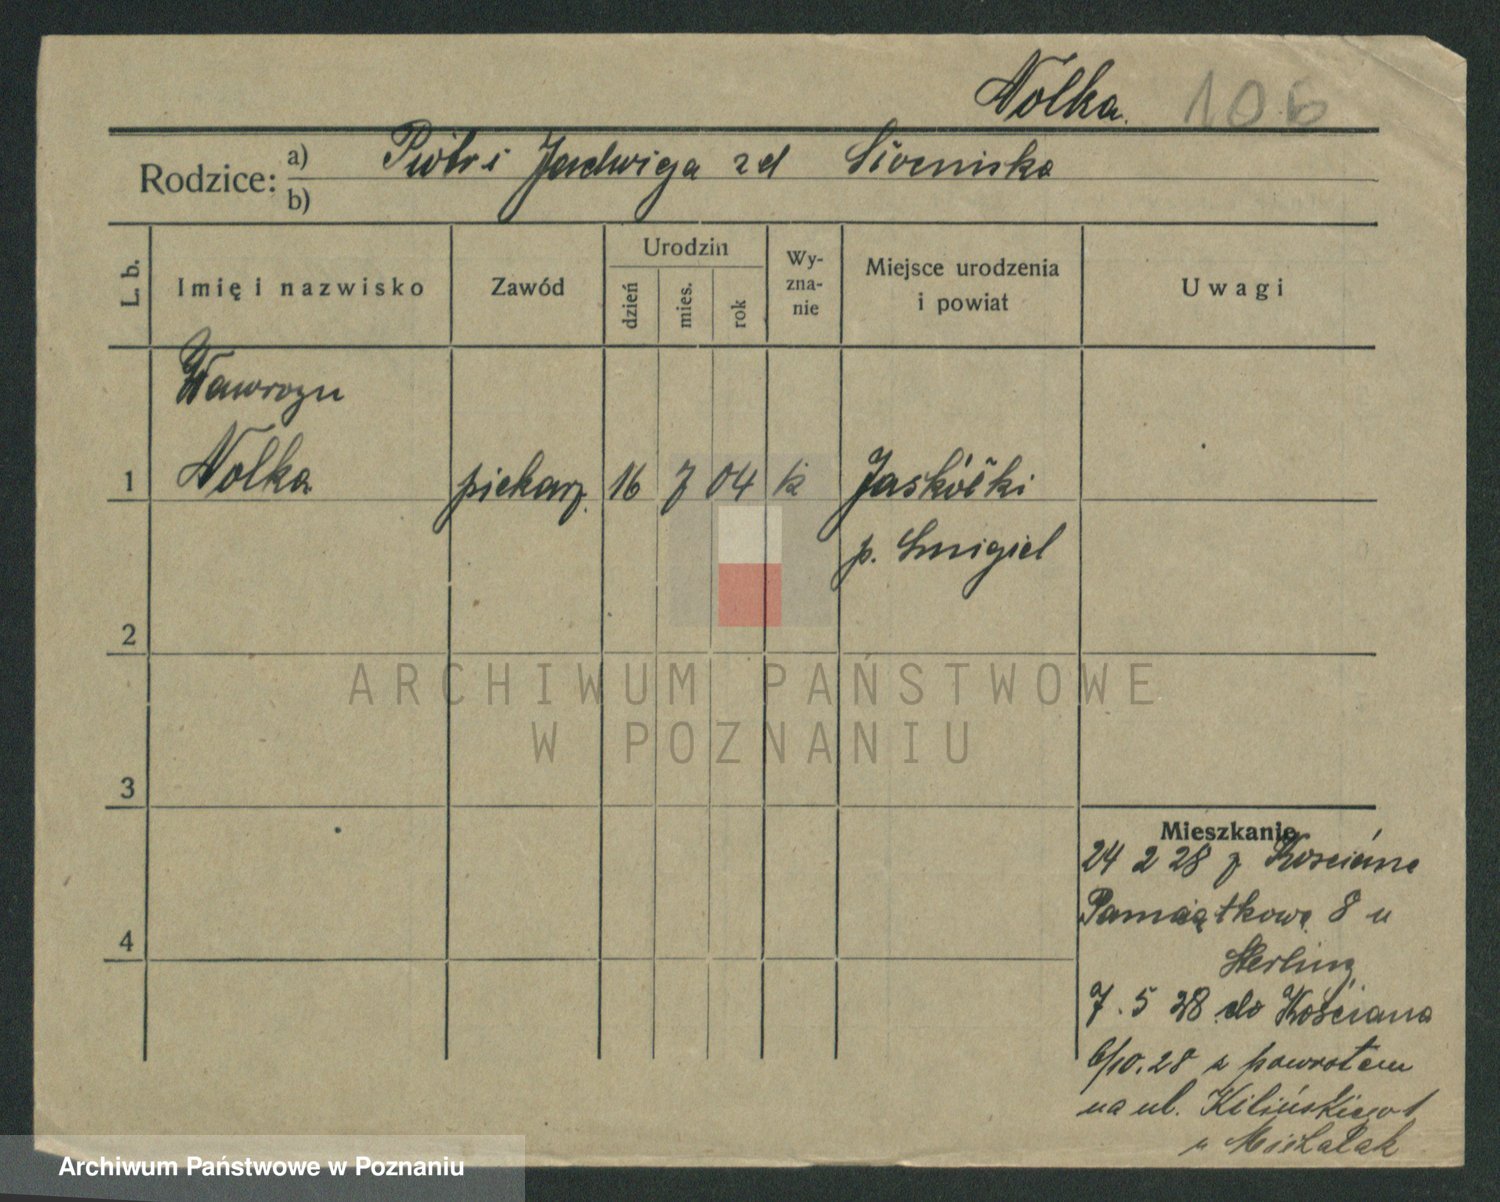 Nolka. 106
Rodzice: a) Piotr i Jadwiga zd
b)
L. b.
Imię i nazwisko
Zawód
Urodzin
dzień
mies.
rok
Wy-
zna-
nie
Miejsce urodzenia
i powiat
Uwagi
Wawrzyn
1 Nolka piekarz 16 7 04 k Jaskółki
p. Smigiel
2
3
4
Mieszkanie
24 2 28 z Kościana
Pamiątkowa 8 u
Sterling
7. 5 28 do Kościana
6/10.28 z powrotem
na ul. Kilińskiego 1
u Michalak
ARCHIWUM PAŃSTWOWE
W POZNANIU
Archiwum Państwowe w Poznaniu